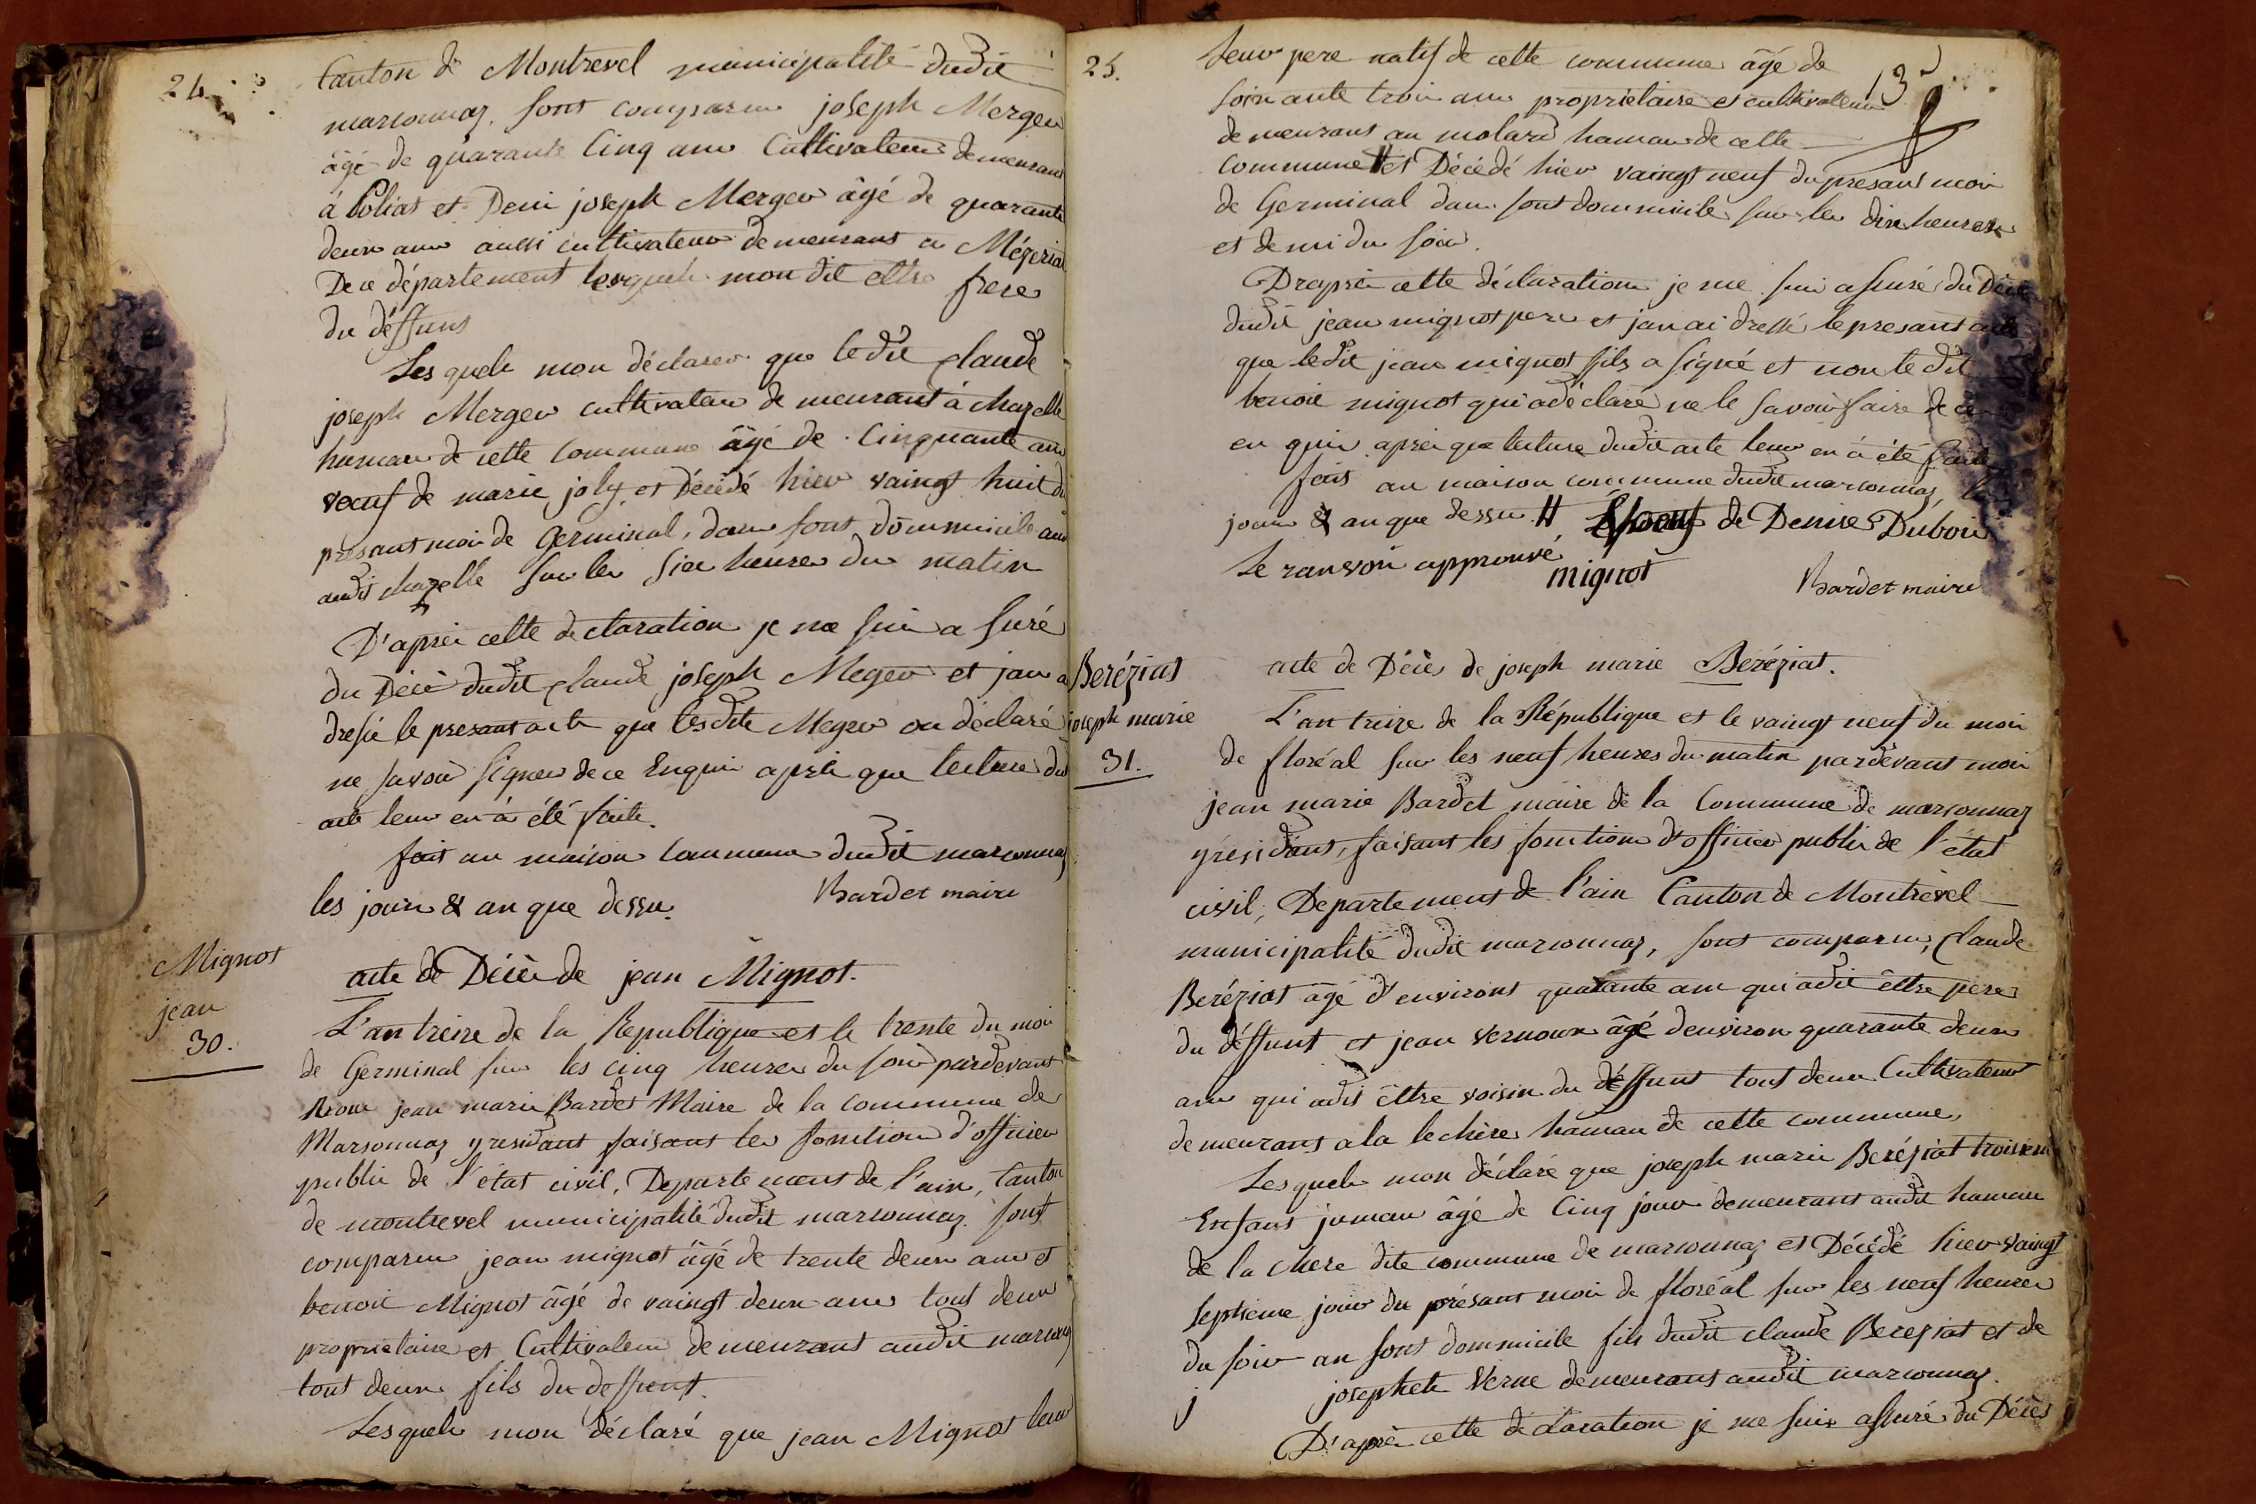 24
Canton de Montrevel municipalité dudit
marsonnaz. sont comparu joseph Merger
âgé de quarante Cinq ans Cultivateur demeurant
à Poliat et Deni joseph Merger âgé de quarante
deux ans aussi cultivateur demeurant a Mézeriat
De ce département lesquels mon dit ettre frere
du déffunt
Les quels mon déclarer que le dit Claude
joseph Merger cultivateur de meurant à chazelle
hameau de cette commune âgé de Cinquante ans
veuf de marie joly et Décédé hier vaingt huit du
présant moi de Germinal, dans sont dommicile au
audit chazelle sur les six heures du matin
D'aprèi cette déclaration je me sui a suré
du Décè dudit Claude joseph Meger et jan a
dressé le presant acte que lesdits Meger on déclaré
ne savoir signer de ce Enquis aprèi que lecture du
acte leur en à été faite.
fait au maison Commune dudit marsonnaz
les jours & an que dessu.
Bardet maire
Mignot
jean
30.
acte de Décè de jean Mignot.
L'an treize de la Republique et le trente du moi
de Germinal sur les cinq heures du soir pardevant
Nous jean marie Bardet Maire de la commune de
Marsonnaz y residant faisant les fonction d'officier
public de l'état civil, Departement de l'ain, Canton
de montrevel municipalité dudit marsonnaz. sont
comparu jean mignot âgé de trente deux ans et
benoit Mignot âgé de vaingt deux ans tout deux
proprietaire et Cultivateur demeurant audit marsonnaz
tout deux fils du deffunt.
Lesquels mon déclaré que jean Mignot leur
25.
13
Leur pere natif de cette commune âgé de
soixante trois ans propriétaire et cultivateur
demeurant au molard hameau de cette
commune # et Décédé hier vaingt neuf du presant moi
de Germinal dans sont dommicile sur les dix heures
et demi du soir.
Draprèi cette déclaration je me sui assuré du Décè
dudit jean mignot pere et jan ai dressé le presant acte
que ledit jean mignot fils a signé et non le dit
benoit mignot qui a déclaré ne le savoir faire de ce
en quis aprèi que lecture dudit acte leur en à été faite
fait au maison commune dudit marsonnaz, les
jour & an que dessu. # de Denise Duboi
Le ranvoi approuvé
mignot
Bardet maire
Beréziat
joseph marie
31.
acte de Décès de joseph marie Beréziat.
L'an treize de la République et le vaingt neuf du moi
de floréal sur les neuf heures du matin pardevant moi
jean marie Bardet maire de la Commune de marsonnaz
yrésidant, faisant les fonction d'officier public de l'état
civil, Departement de l'ain Canton de Montrevel
municipalité dudit marsonnaz, sont comparu, Claude
Beréziat âgé d'environt quarante ans qui a dit êttre pere
du déffunt et jean vernoux âgé denviron quarante deux
ans qui adit êttre voisin du déffunt tout deux Cultivateur
demeurant a la lechère hamau de cette commune,
Lesquels mon déclaré que joseph marie Beréziat troisieme
Enfant jumau âgé de Cinq jour demeurant audit hamau
de la chere dite commune de marsonnaz et Décédé hier vaingt
septieme jour du présant moi de floréal sur les neuf heures
du soir an sont dommicile fils dudit claude Bereziat et de
j josephete Verne demeurant audit marsonnaz.
D'aprèi cette déclaration je me suis assuré du Décès